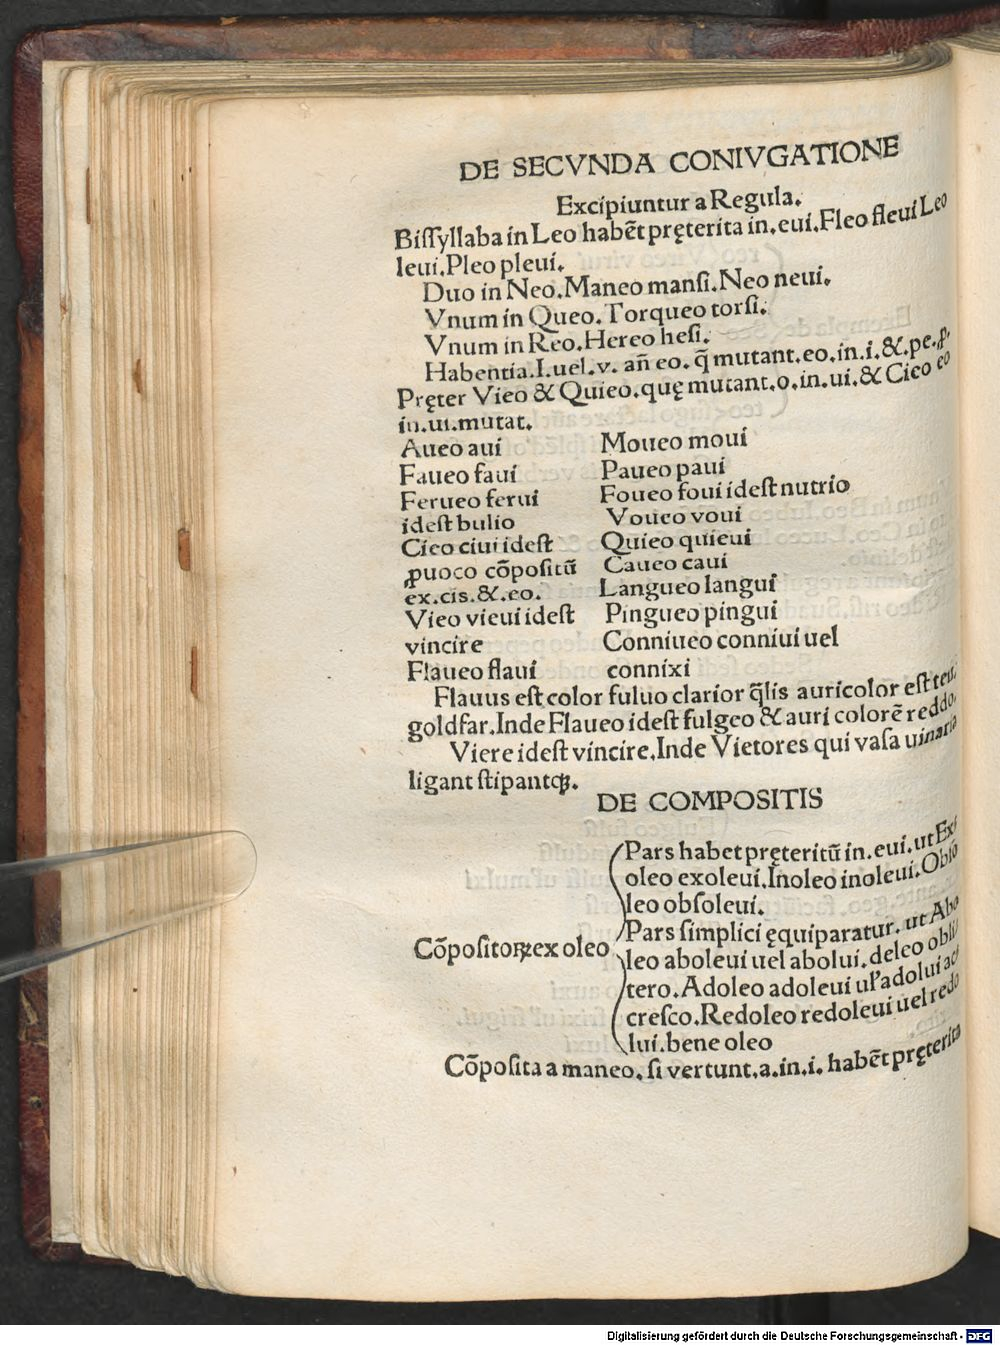 DE SECVNDA CONIVGATIONE
Excipiuntur a Regula.
Biſſyllaba in Leo habēt pręterita in.eui.Fleo fleui Leo
leui.Pleo pleui.
Duo in Neo.Maneo manſi.Neo neui.
Vnum in Queo.Torqueo torſi.
Vnum in Reo.Hereo heſi.
Habentia.I.uel.v. añ eo. q̃ mutant.eo.in.i.&.pe.ꝓ.
Pręter Vieo & Quieo.quę mutant.o.in.ui.& Cieo eo
in.ui.mutat.
Aueo aui
Faueo faui
Ferueo ferui
ideſt bulio
Cieo ciui ideſt
ꝓuoco cōpoſitū
ex.cis.&.eo.
Vieo vieui ideſt
vincire
Flaueo flaui
Moueo moui
Paueo paui
Foueo foui ideſt nutrio
Voueo voui
Quieo quieui
Caueo caui
Langueo langui
Pingueo pingui
Conniueo conniui uel
connixi
Flauus eſt color fuluo clarior q̃lis auricolor eſt teu.
goldfar.Inde Flaueo ideſt fulgeo & auri colorē reddo.
Viere ideſt vincire.Inde Vietores qui vaſa uinaria
ligant ſtipantqꝫ.
DE COMPOSITIS
Cōpoſitoꝝ ex oleo
Pars habet pręteritū in.eui.ut Ex/
oleo exoleui.Inoleo inoleui.Obſo
leo obſoleui.
Pars ſimplici ęquiparatur. ut Abo
leo aboleui uel abolui.deleo obli/
tero.Adoleo adoleui uł adolui ac/
creſco.Redoleo redoleui uel redo
lui.bene oleo
Cōpoſita a maneo.ſi vertunt.a.in.i. habēt pręterita
Digitalisierung gefördert durch die Deutsche Forschungsgemeinschaft - DFG